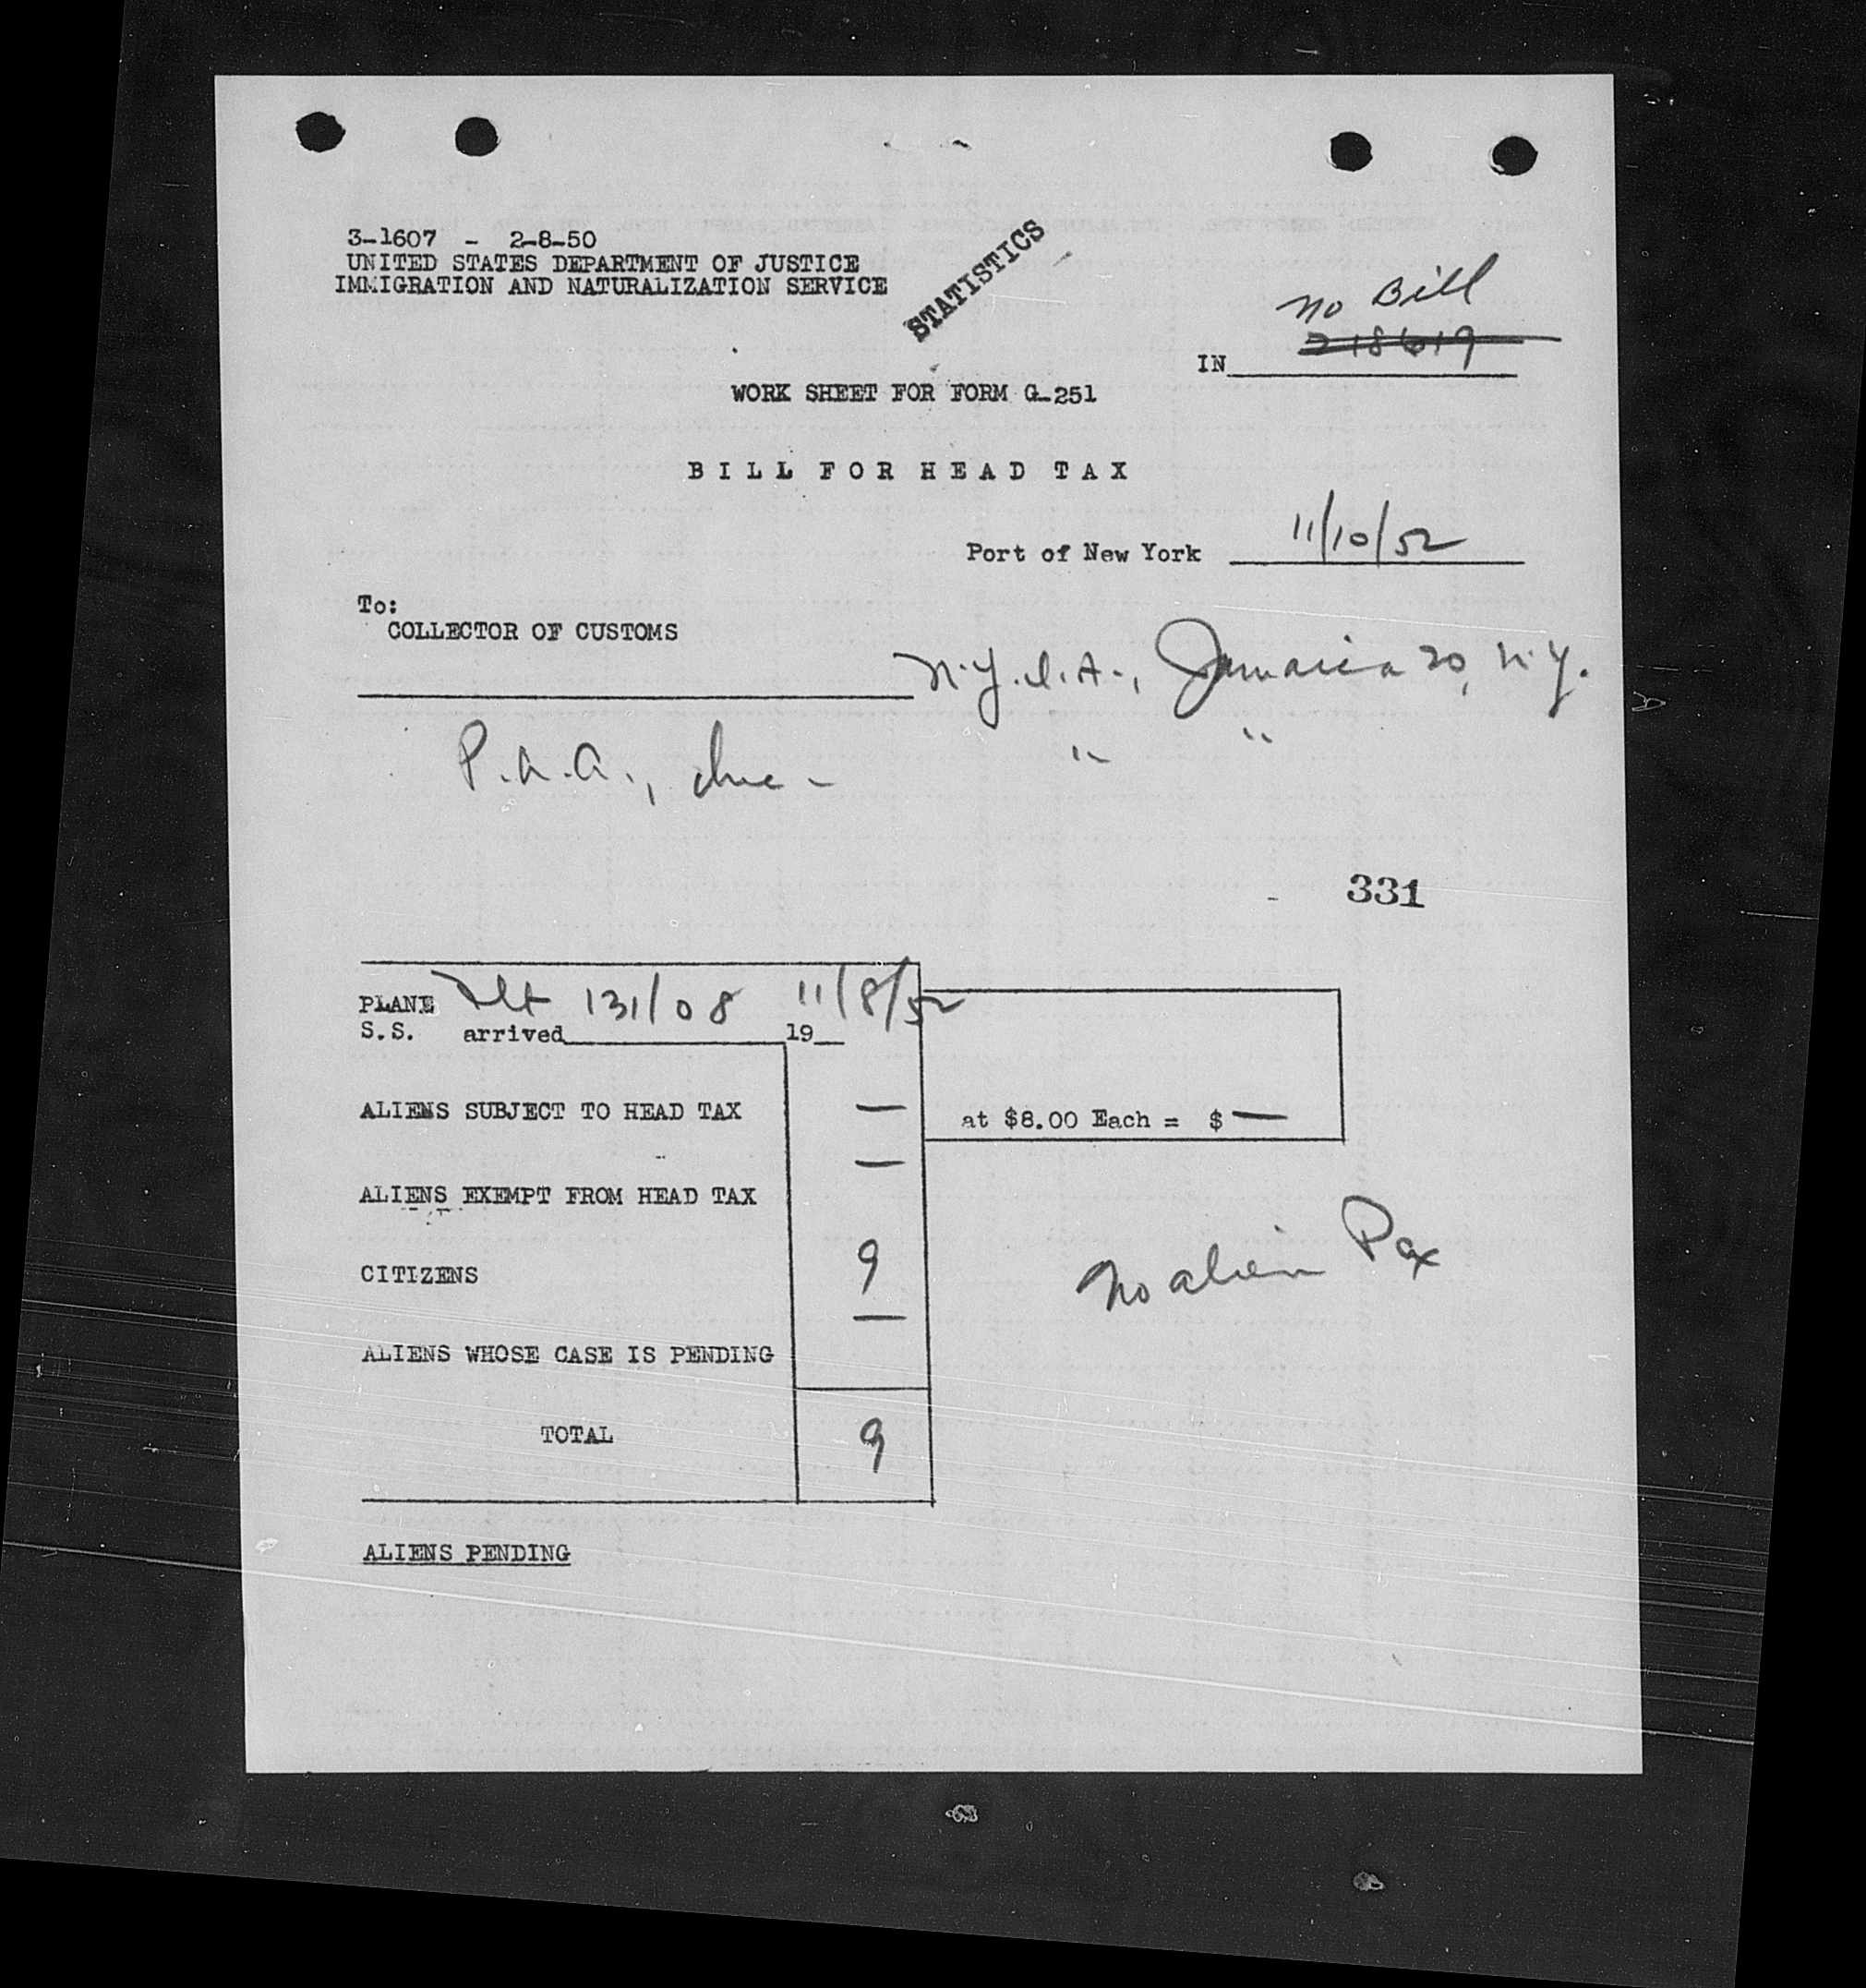 3-1607 - 2-8-50
UNITED STATES DEPARTMENT OF JUSTICE
IMMIGRATION AND NATURALIZATION SERVICE
STATISTICS
No Bill
218619
IN
WORK SHEET FOR FORM G-251
BILL FOR HEAD TAX
Port of New York 11/10/52
To:
COLLECTOR OF CUSTOMS
N.Y.I.A., Jamaica 30, N.Y.
P.A.A., Inc. " "
331
PLANE Flt 131/08 11/8/52
S.S. arrived 19
ALIENS SUBJECT TO HEAD TAX — at $8.00 Each = $ —
ALIENS EXEMPT FROM HEAD TAX —
CITIZENS 9 No alien Pax
ALIENS WHOSE CASE IS PENDING —
TOTAL 9
ALIENS PENDING